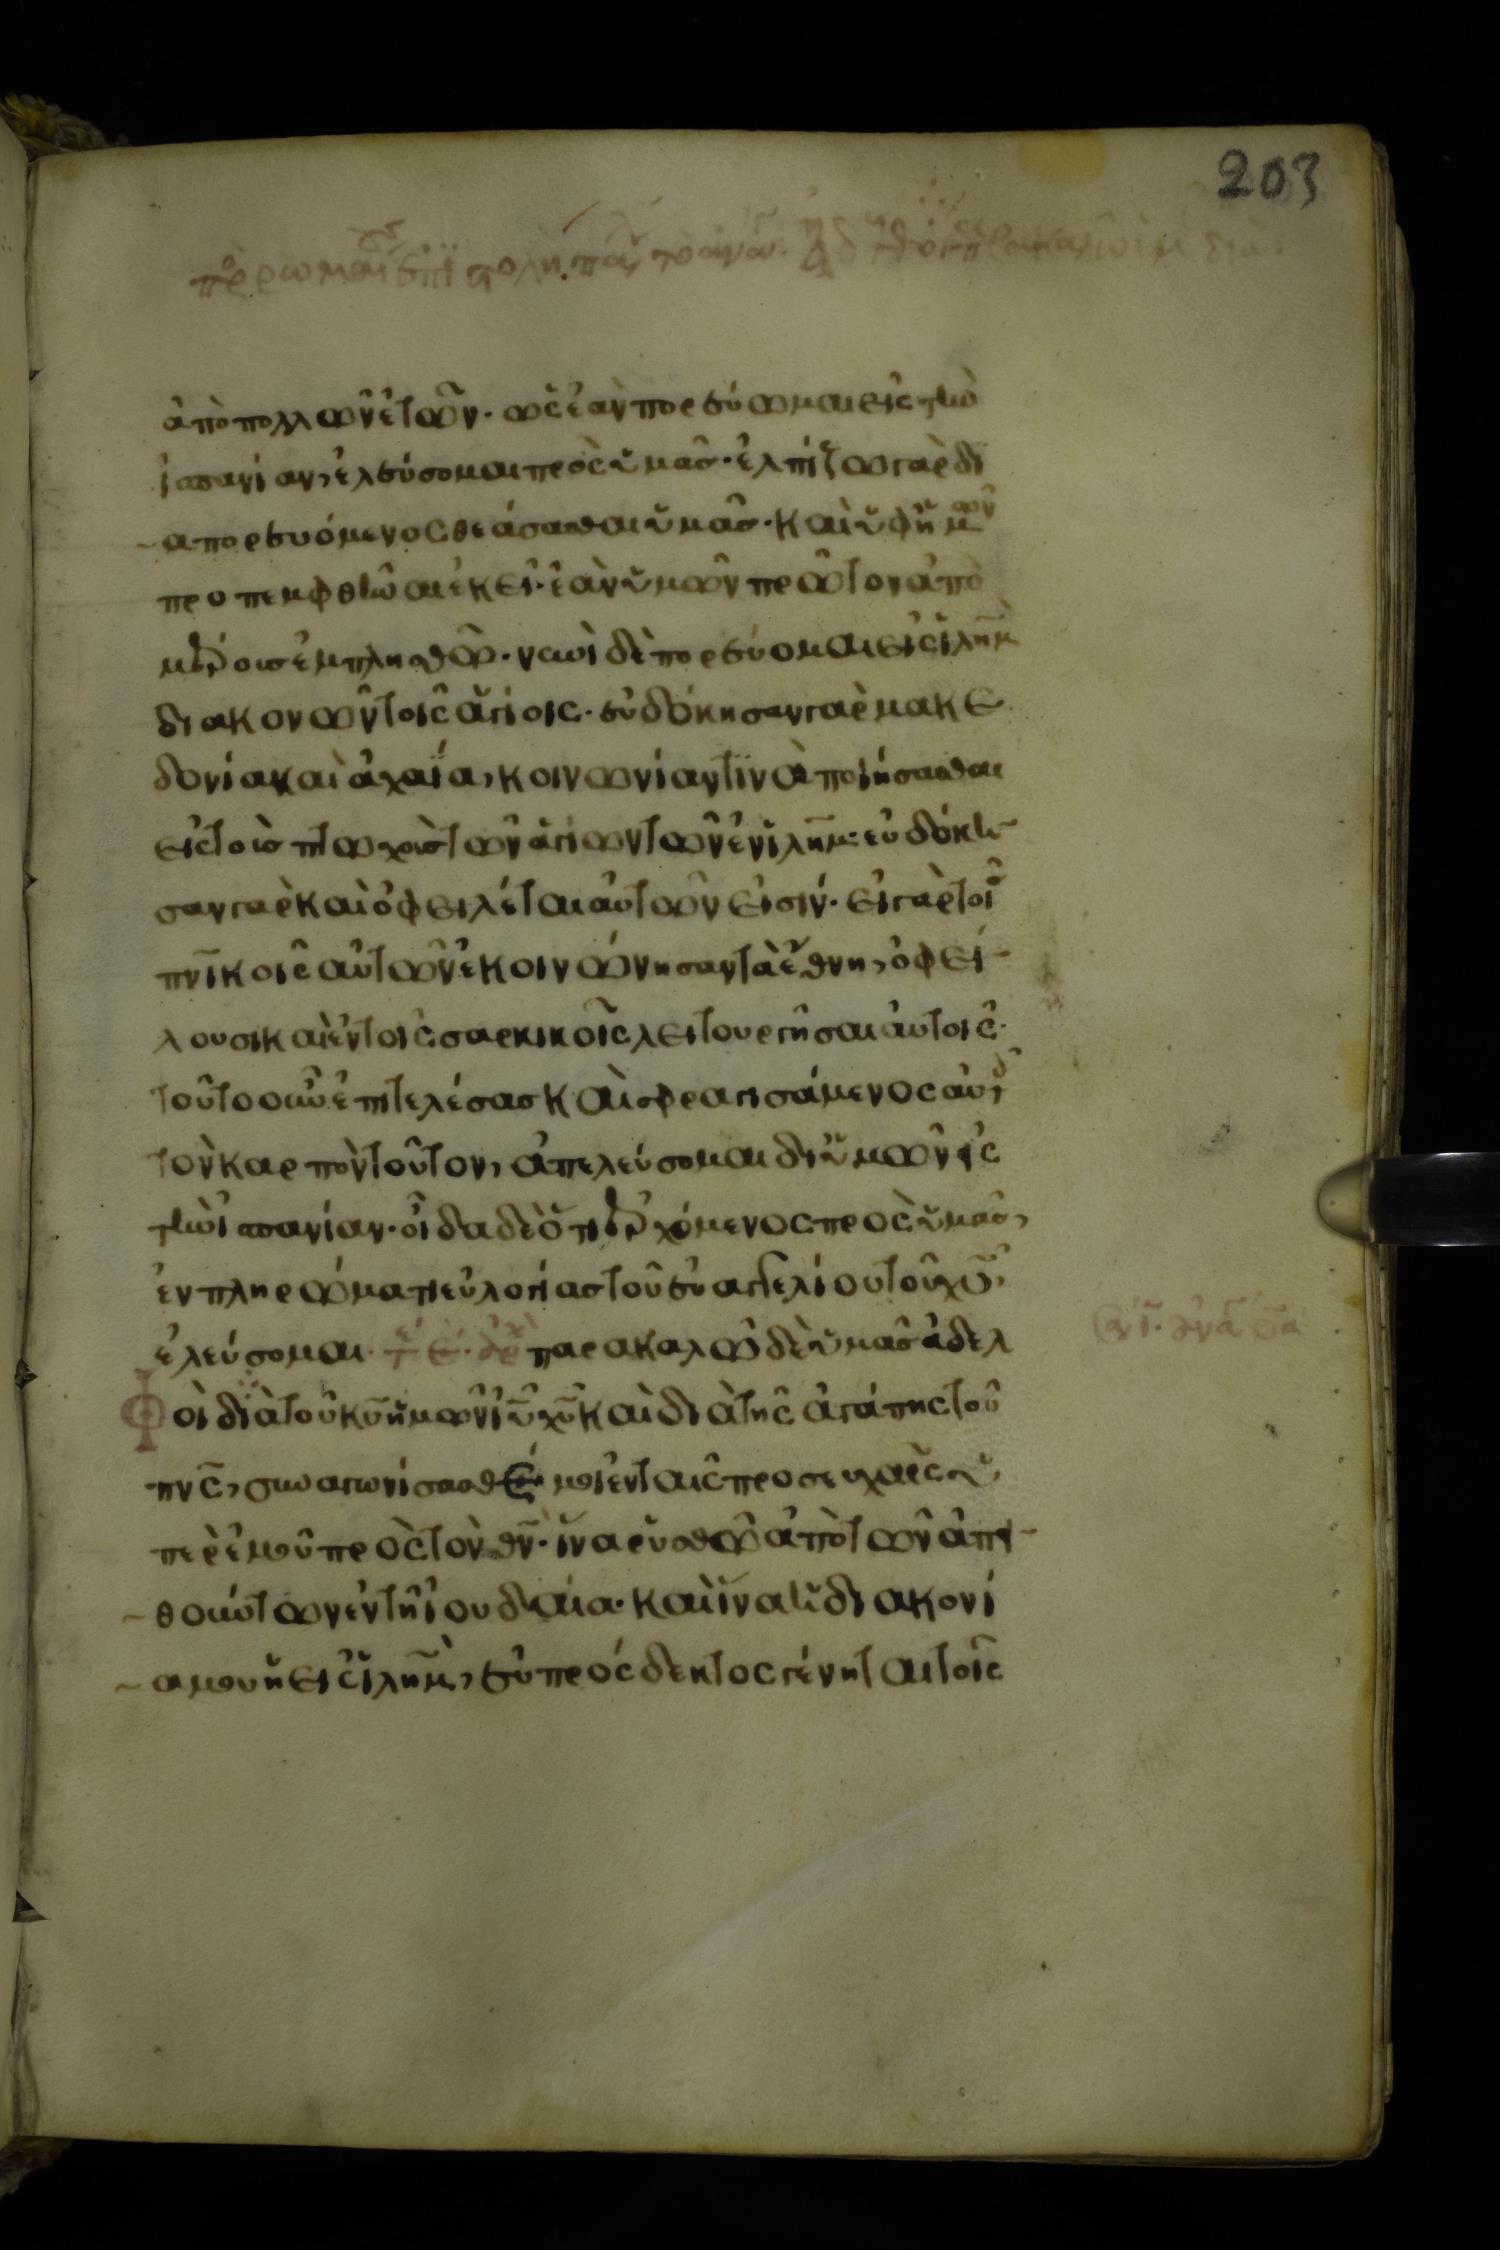 203
ἀπὸ πολλῶν ἐτῶν· ὡς ἐὰν πορεύωμαι εἰς τὴν
ἱσπανίαν, ἐλεύσομαι πρὸς ὑμᾶς· ἐλπίζω γὰρ δι
απορευόμενος θεάσασθαι ὑμᾶς· καὶ ὑφ ὑμῶν
προπεμφθῆναι ἐκεῖ· ἐὰν ὑμῶν πρῶτον ἀπὸ
μέρους ἐμπλησθῶ· νυνὶ δὲ πορεύομαι εἰς ἱλημ
διακονῶν τοῖς ἁγίοις· εὐδόκησαν γὰρ μακε
δονία καὶ ἀχαΐα, κοινωνίαν τινὰ ποιήσασθαι
εἰς τοὺς πτωχοὺς τῶν ἁγίων τῶν ἐν ἱλημ· εὐδόκη
σαν γὰρ καὶ ὀφειλέται αὐτῶν εἰσίν· εἰ γὰρ τοῖς
πνικοῖς αὐτῶν ἐκοινώνησαν τὰ ἔθνη, ὀφεί
λουσι καὶ ἐν τοῖς σαρκικοῖς λειτουργῆσαι αὐτοῖς·
τοῦτο οὖν ἐπιτελέσας καὶ σφραγισάμενος αὐτοῖς
τὸν καρπὸν τοῦτον, ἀπελεύσομαι δι ὑμῶν εἰς
τὴν ἱσπανίαν· οἶδα δὲ ὅτι ἐρχόμενος πρὸς ὑμᾶς,
ἐν πληρώματι εὐλογίας τοῦ εὐαγγελίου τοῦ χυ
ἐλεύσομαι· παρακαλῶ δὲ ὑμᾶς ἀδελ
φοὶ διὰ τοῦ κυ ἡμῶν ιυ χυ καὶ διὰ τῆς ἀγάπης τοῦ
πνς, συναγωνίσασθέ μοι ἐν ταῖς προσευχαῖς ὑ
πὲρ ἐμοῦ πρὸς τὸν θν· ἵνα ῥυσθῶ ἀπὸ τῶν ἀπει
θούντων ἐν τῇ ἰουδαία· καὶ ἵνα ἡ διακονί
α μου ἡ εἰς ἱλημ, εὐπρόσδεκτος γένηται τοῖς